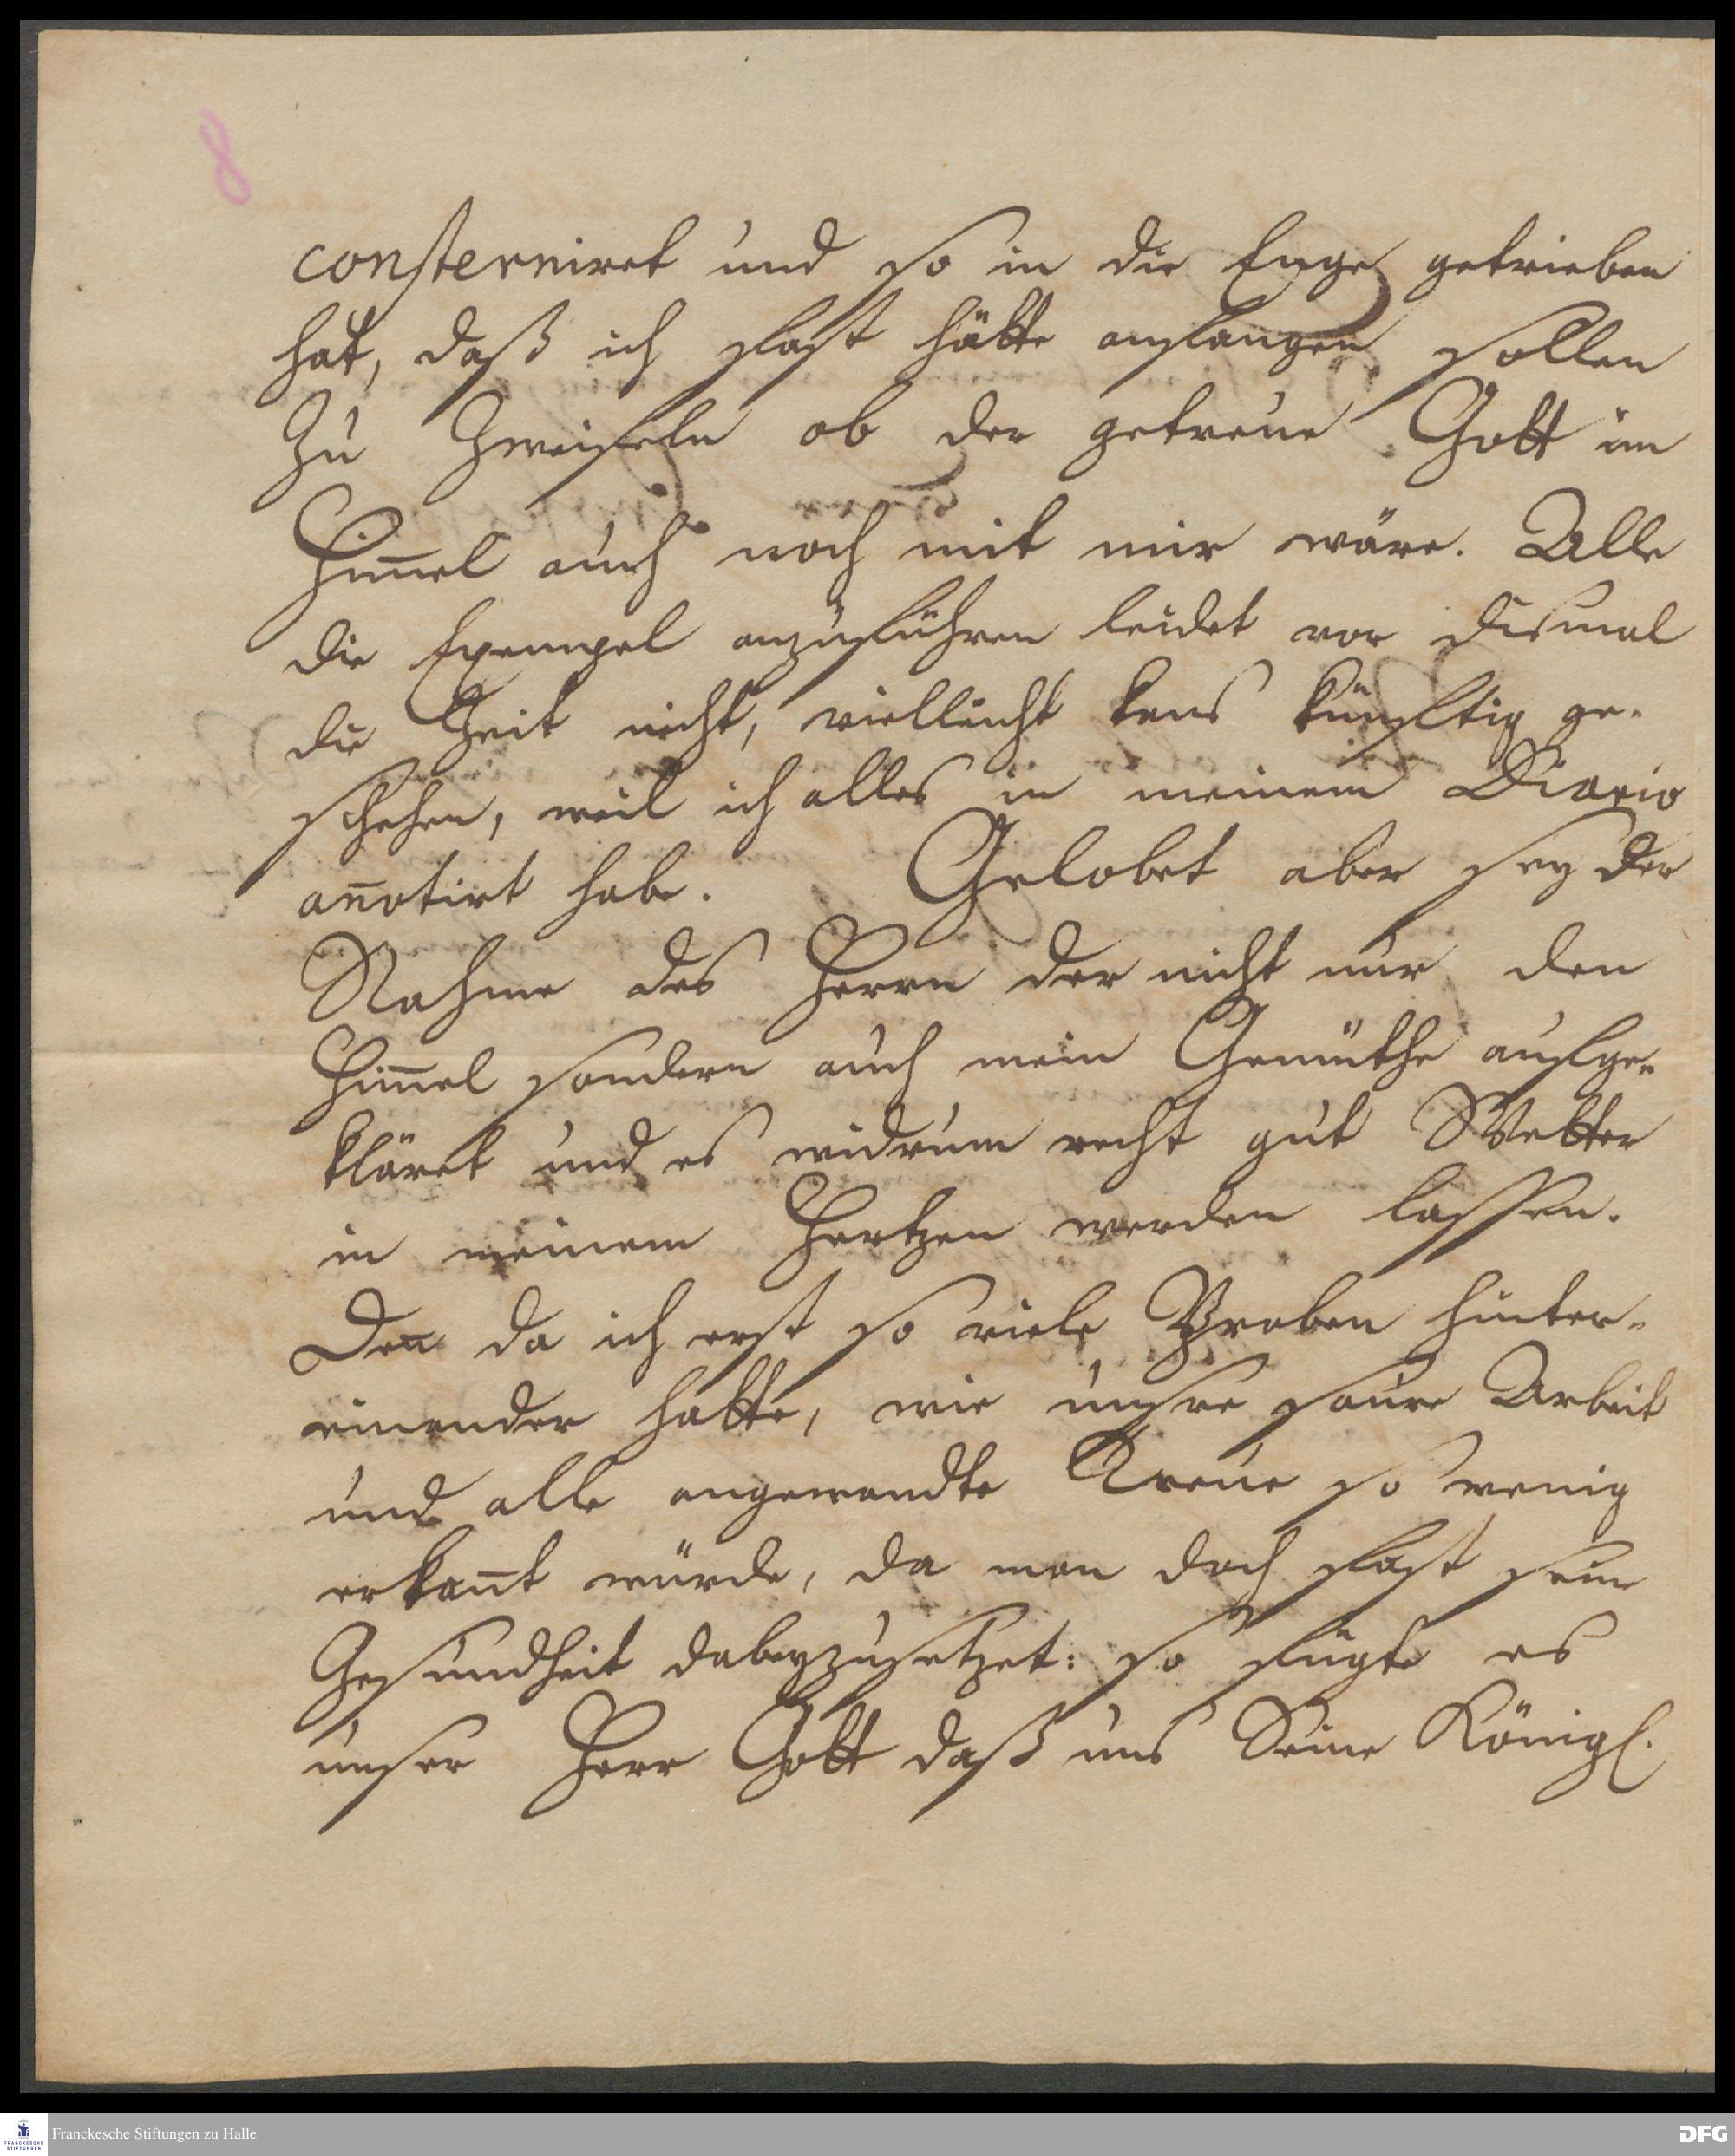 8
consterniret und so in die Enge getrieben
hat, daß ich fast hätte anfangen sollen
zu zweifeln ob der getreue Gott im
Him̅el auch noch mit mir wäre. Alle
die Exempel anzuführen leidet vor dismal
die Zeit nicht, vielleicht kans künftig ge-
schehen, weil ich alles in meinem Diario
an̅otirt habe. Gelobet aber sey der
Nahme des Herrn der nicht nur den
Him̅el sondern auch mein Gemüthe aufge-
kläret und es widrum recht gut Wetter
in meinem Hertzen werden lassen.
Den̅ da ich erst so viele Proben hinter-
einander hatte, wie unsre saure Arbeit
und alle angewandte Treue so wenig
erkan̅t würde, da man doch fast seine
Gesundheit dabeyzusetzet: so fügte es
unser Herr Gott daß uns Seine Königl.
Franckesche Stiftungen zu Halle
FRANCKESCHE
STIFTUNGEN
DFG